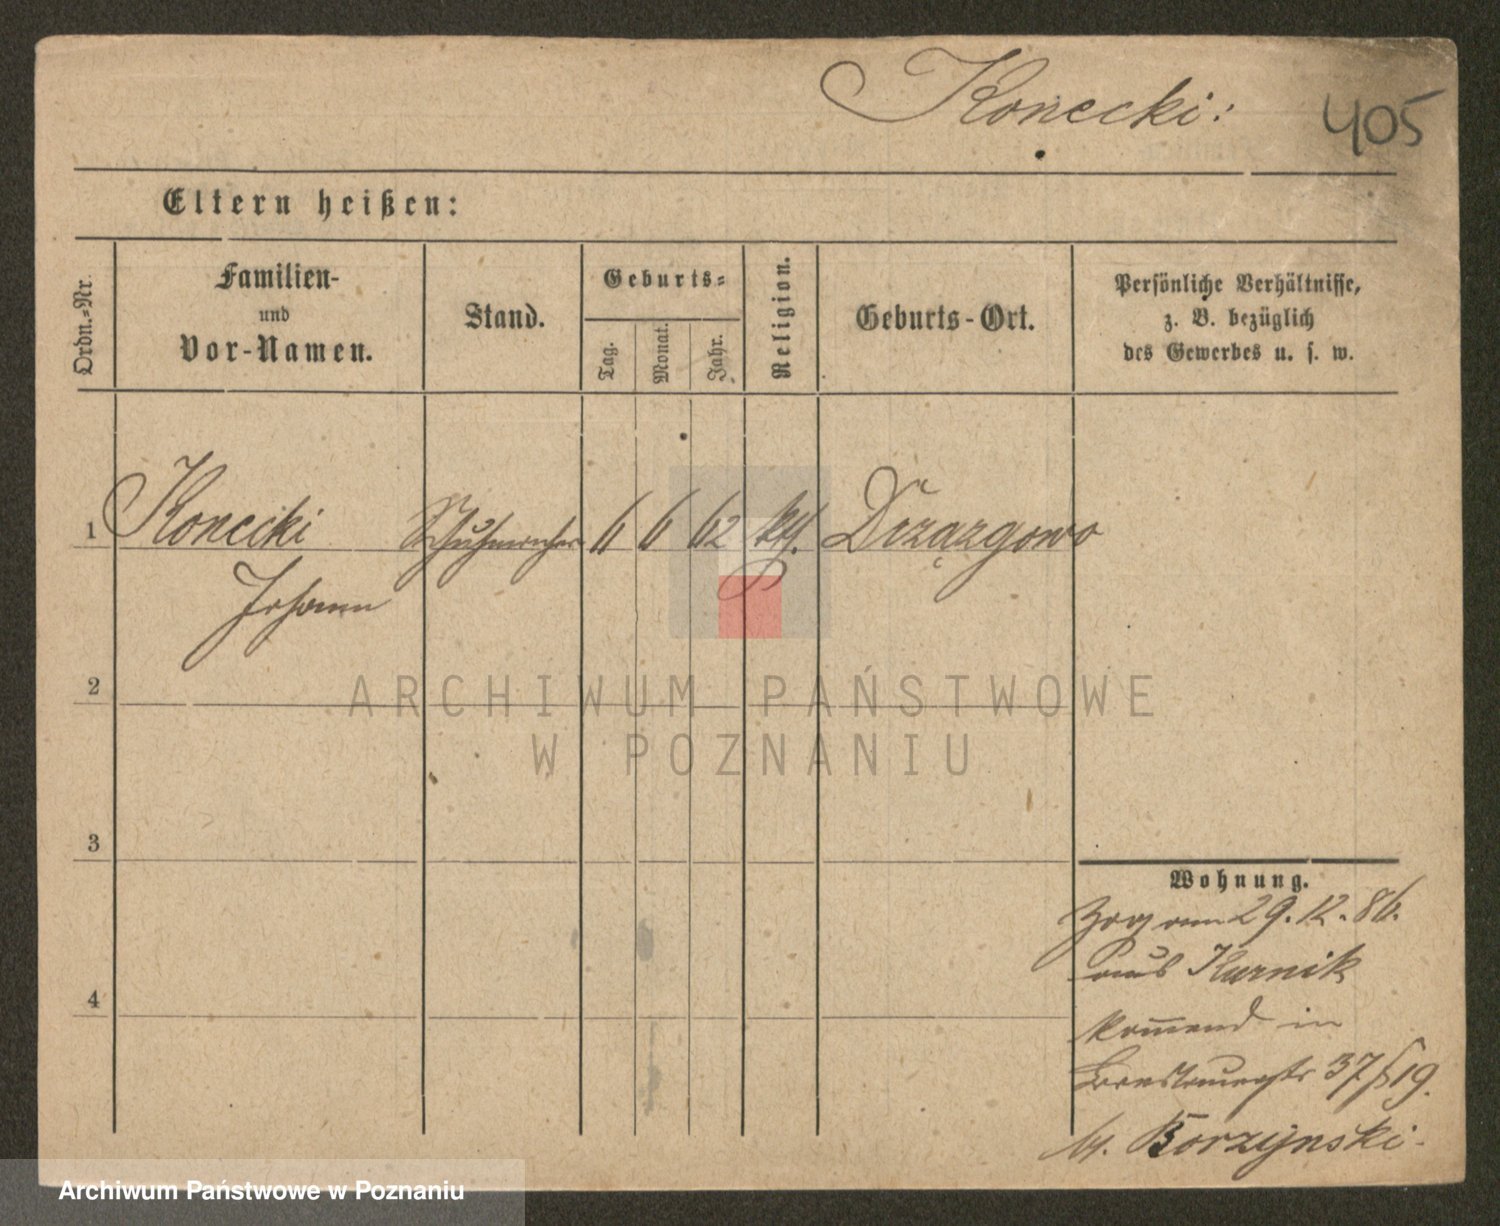 Konecki:
405
Eltern heißen:
Ordn.-Nr.
Familien-
und
Vor-Namen.
Stand.
Geburts-
Tag.
Monat.
Jahr.
Religion.
Geburts-Ort.
Persönliche Verhältnisse,
z. B. bezüglich
des Gewerbes u. s. w.
1 Konecki Schuhmacher 6 6 62 kth. Drzązgowo
Johann
2
3
4
Wohnung.
Zog am 29. 12. 86.
aus Kurnik
kom̄end in
37/19.
b. Borzynski.
ARCHIWUM PAŃSTWOWE
W POZNANIU
Archiwum Państwowe w Poznaniu